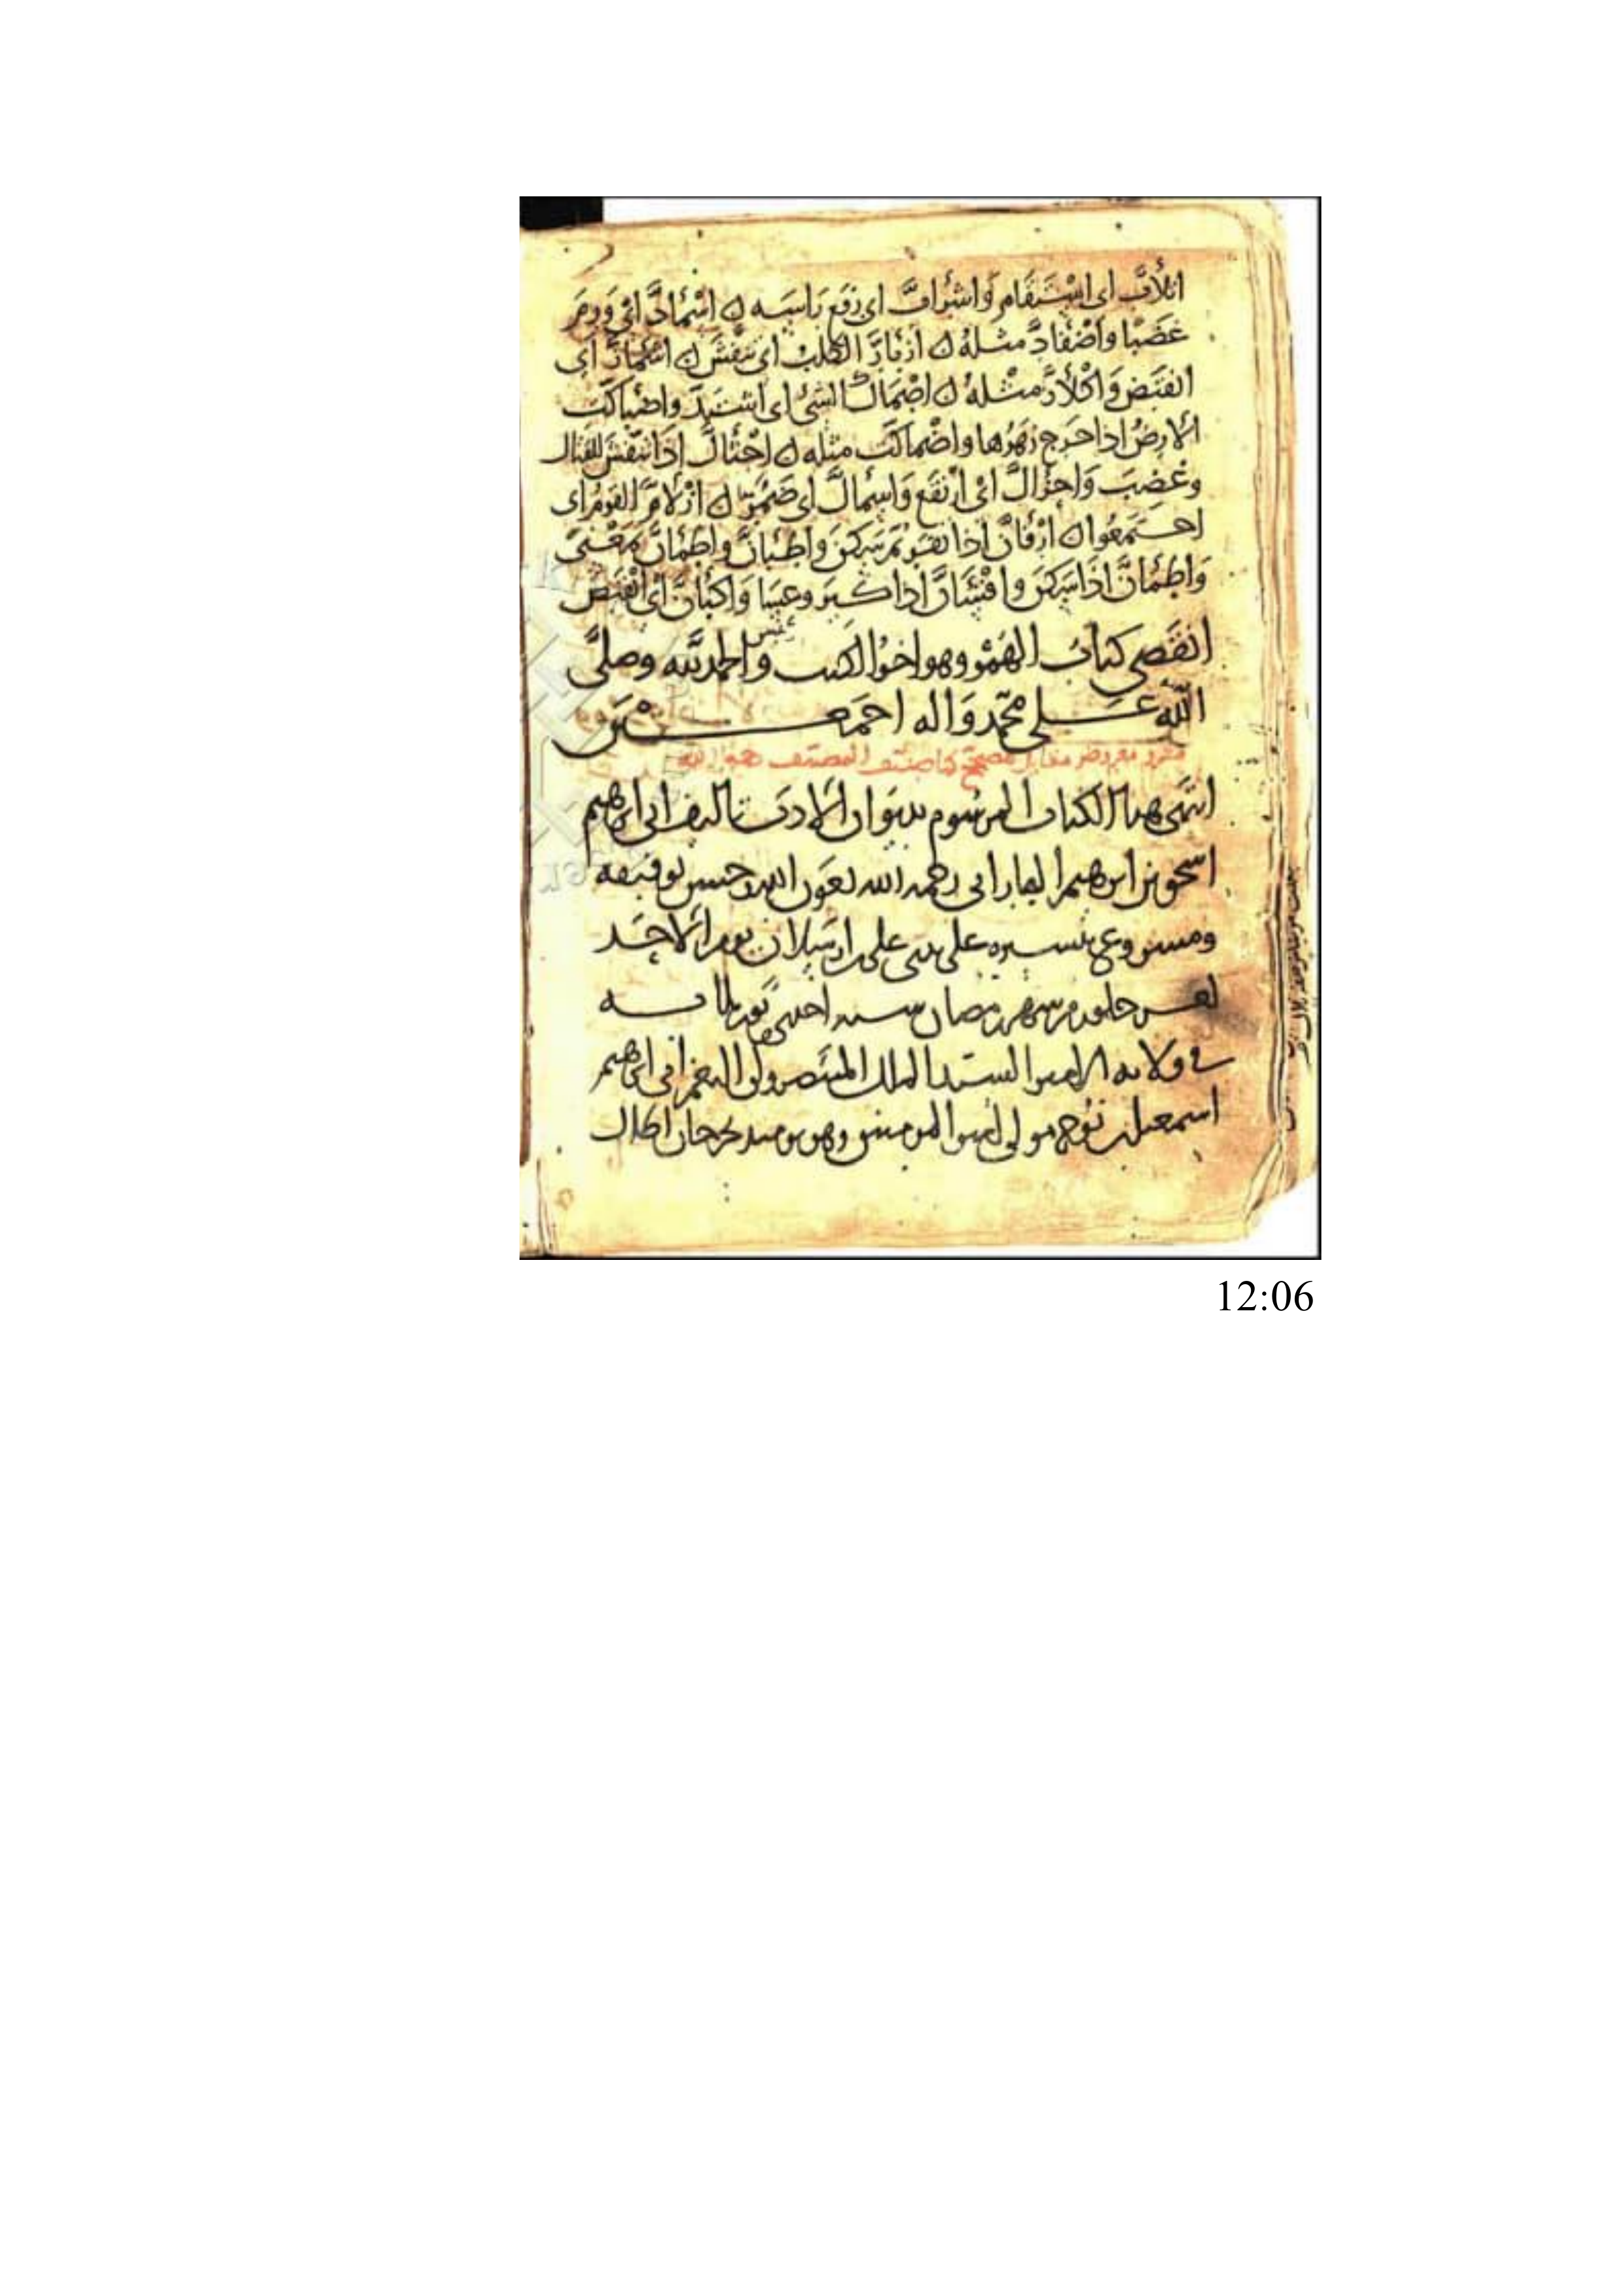 اتلأبّ اى استقام واشرأبّ اى رفع راسه ن اسمأدّ اى ورم
غضبا واضفأدّ مثله ن ازبأرّ الكلب اى تنفّش ن اى
انقبض واكلأزّ مثله ن اضمأكّ الشئ اى اشتدّ واضبأكّت
الارض اذا خرج زهرها واضمأكّت مثله ن اجثألّ اذا تنفّش للقتال
وغضب واحزألّ اى ارتفع واسمألّ اى ضمر ن ازلأمّ القوم اى
اجتمعوا ن ارفأنّ اذا نفر ثم سكن واطبأنّ واطمأنّ بمعنى
واطمأنّ اذا سكن واقسأنّ اذا كبر وعسا واكبأنّ اى انقبض
انقضى كتاب الهمز وهو اخر الكتب والحمد لله وصلى
الله على محمد واله اجمعين
معروض مقابل مصحّح المصنف
انتهى هذا الكتاب المرسوم بديوان الادب تاليف ابى ابرهيم
اسحق بن ابرهيم الفارابى رحمه الله بعون الله وحسن توفيقه
على يدى على يوم الاحد
خلون من شهر رمضان سنه احدى
فى ولايه الامير السيد الملك المنتصر ولى النعم ابى ابرهيم
اسمعيل بن نوح مولى امير المومنين وهو يومئذ بجرجان اطال
12:06